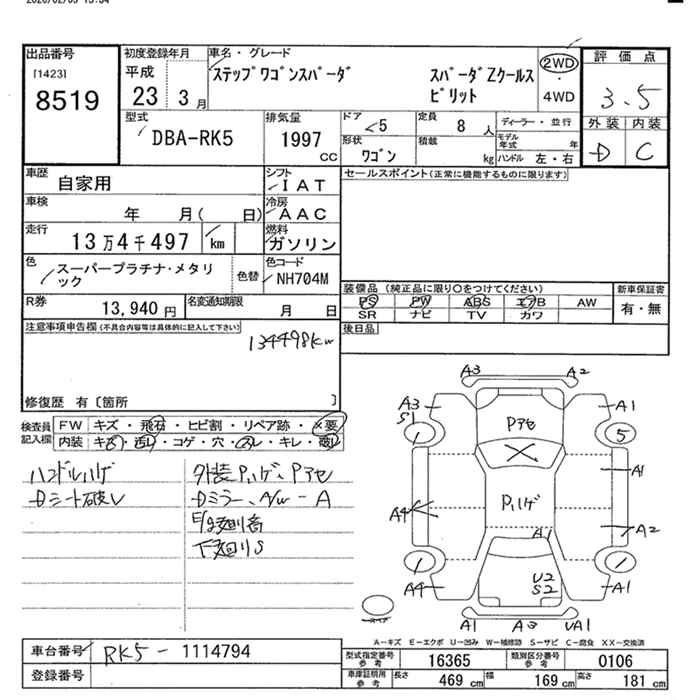 出品番号
[1423]
8519
初度登録年月
平成
23 3月
車名・グレード
ステップワゴンスパーダ
スパーダZクールス
ピリット
2WD
4WD
評価点
3.5
外装 内装
D C
型式
DBA-RK5
排気量
1997
cc
ドア
5
定員
8 人
ディーラー・並行
形状
ワゴン
積載
kg
モデル年式 年
ハンドル 左・右
車歴
自家用
シフト
IAT
車検
年 月( 日)
冷房
AAC
走行
13万4千497
km
燃料
ガソリン
色
スーパープラチナ・メタリ
ック
色替
色コード
NH704M
R券
13,940円
名変通知期限
月 日
セールスポイント(正常に機能するものに限ります)
装備品(純正品に限り○をつけてください)
新車保証書
PS PW ABS エアB AW
SR ナビ TV カワ
有・無
後日品
注意事項申告欄(不具合内容等は具体的に記入して下さい)
134498km
修復歴 有〔箇所 〕
検査員
記入欄
FW キズ・飛石・ヒビ割・リペア跡・X要
内装 キズ・汚れ・コゲ・穴・スレ・キレ・悪い
ハンドルハゲ
Dシート破レ
外装Pハゲ、Pアセ
Dミラー、A/W-A
下廻りS
A3 A2
A3 S1 A1
Pアセ
5
1
A1
Pハゲ
A4
A2
A1
1
1
U2
S2
A4 A1
A1 A3 UA1
スペア
A-キズ E-エクボ U-凹み W-補修跡 S-サビ C-腐食 XX-交換済
車台番号
RK5-1114794
登録番号
型式指定番号
参考
16365
類別区分番号
参考
0106
車庫証明用
参考
長さ 469 cm 幅 169 cm 高さ 181 cm